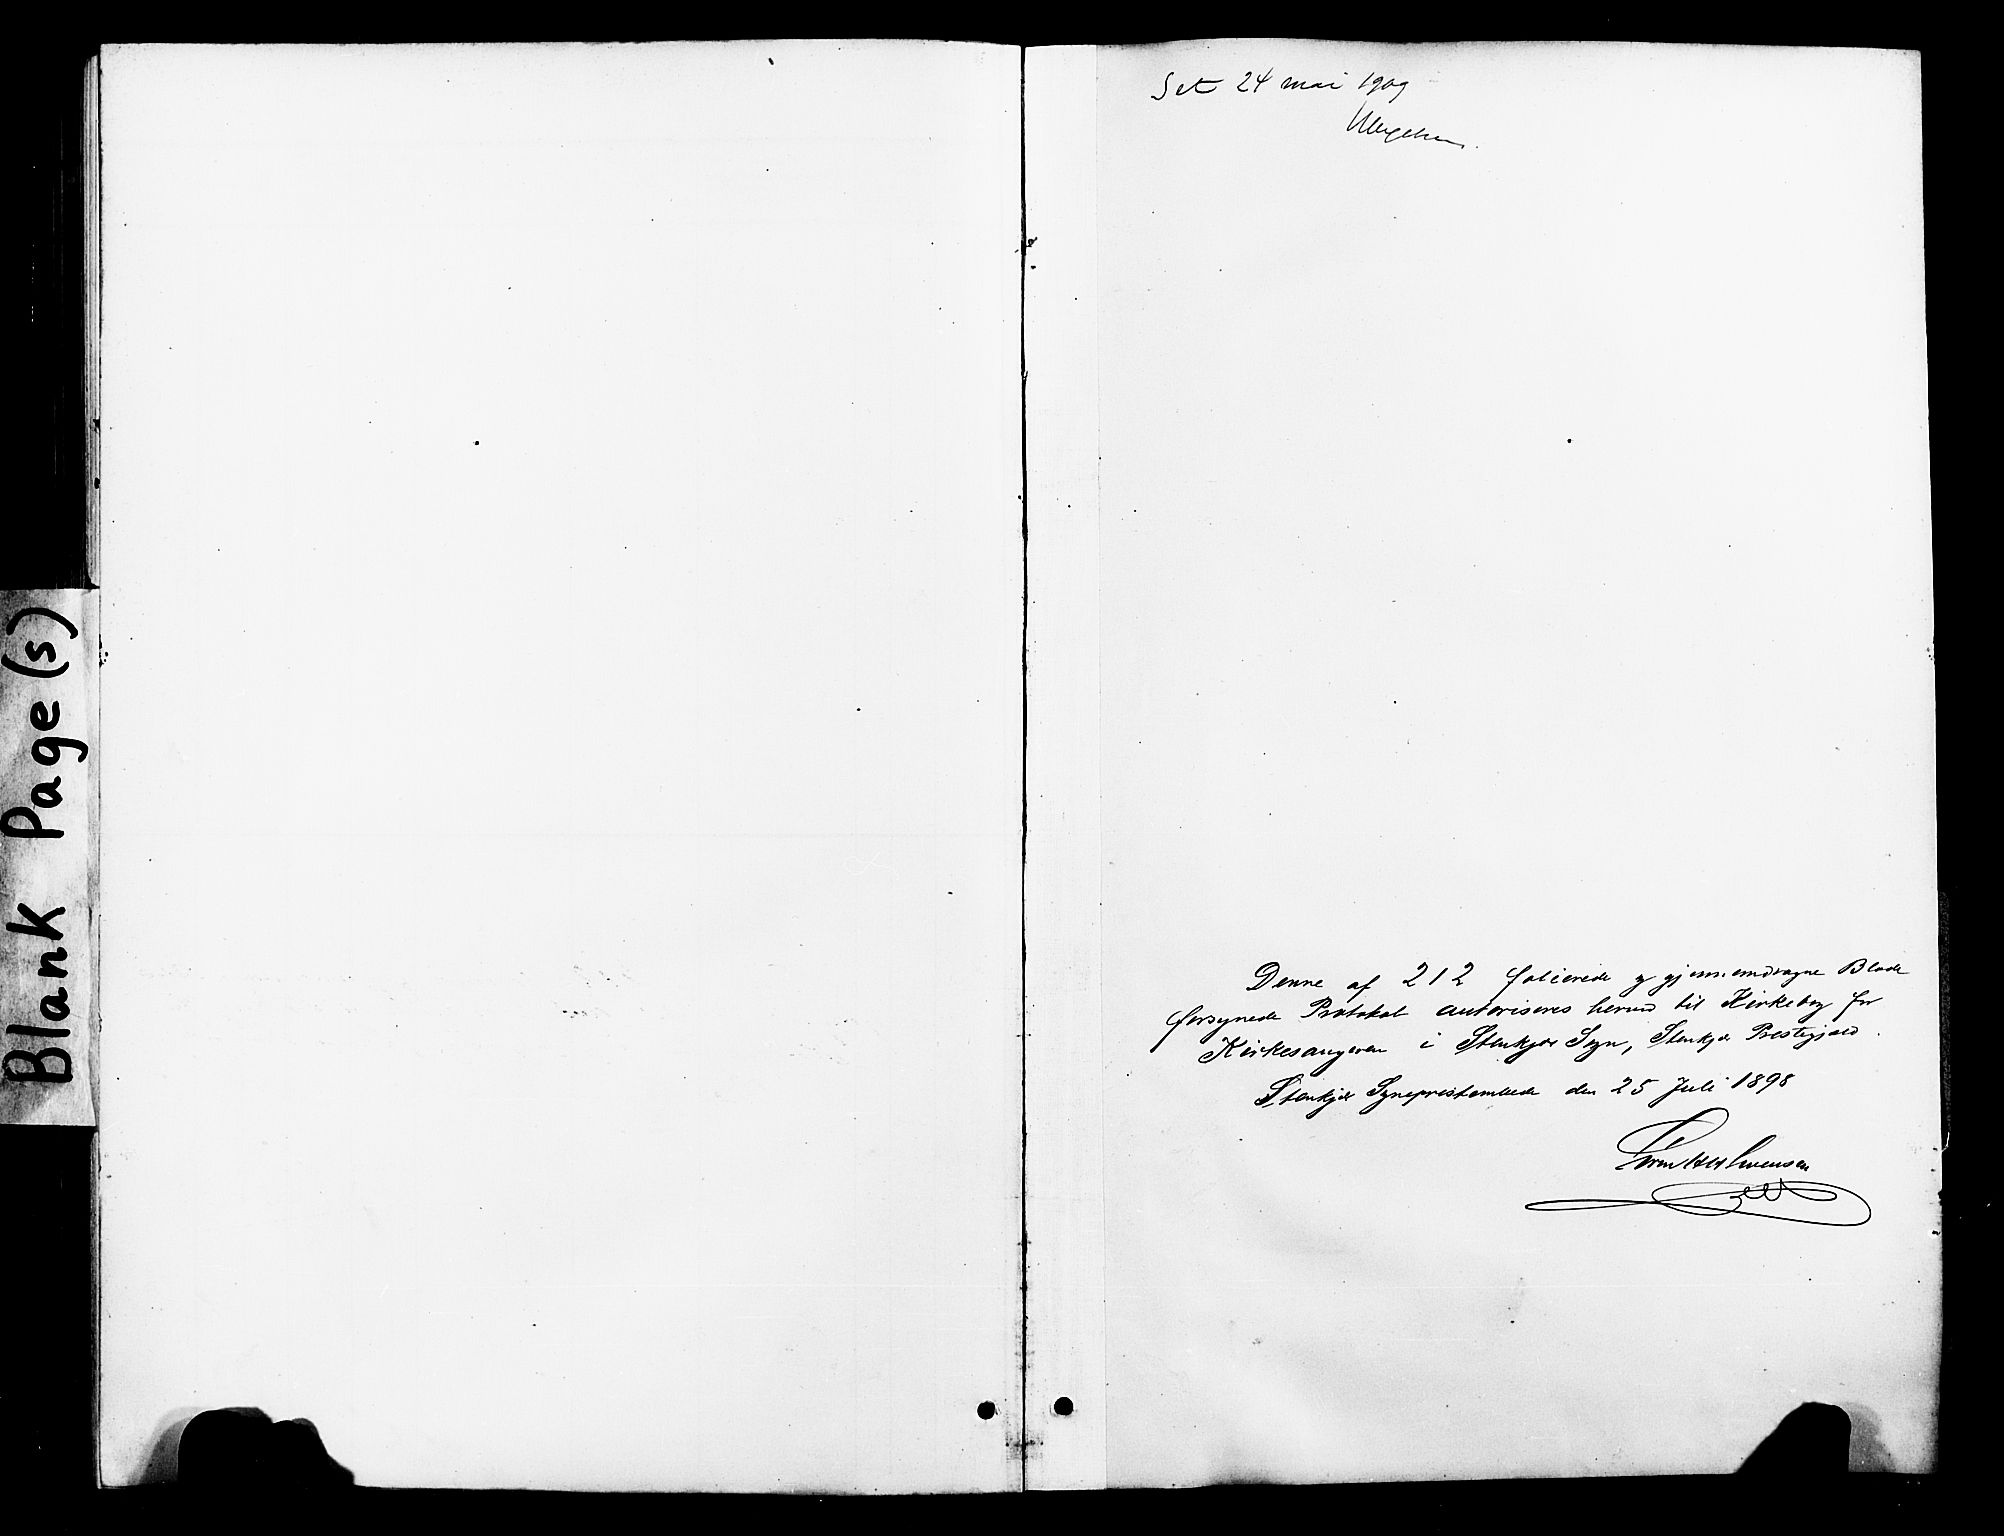 Blank Page (s)
Set 24 mai 1909
Denne af 212 folierede og gjennemdragne Blade
forsynede Protokol autoriseres herved til Kirkebog for
Kirkesangeren i Stenkjær Sogn, Stenkjær Prestegjæld.
Stenkjær Sogneprestembede den 25 Juli 1898